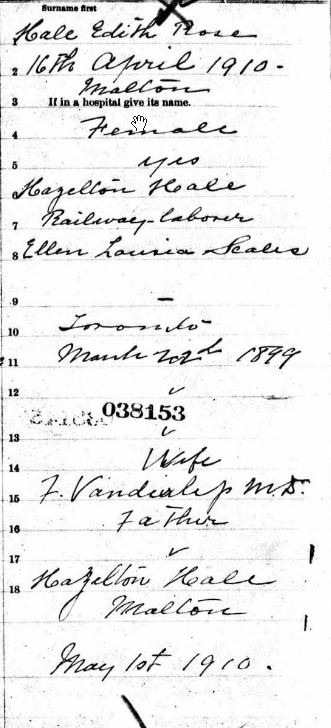 Surname first
1 Hale Edith Rose
2 16th April 1910.
Malton
3 If in a hospital give its name.
4 Female
5 yes
6 Hazelton Hale
7 Railway-laborer
8 Ellen Louisa Scales
9 –
10 Toronto
11 March 22nd 1899
12 ✓
038153
13 ✓
14 Wife
15 F. Vanderlip M.D.
16 Father
17 ✓
18 Hazelton Hale
Malton
May 1st 1910.